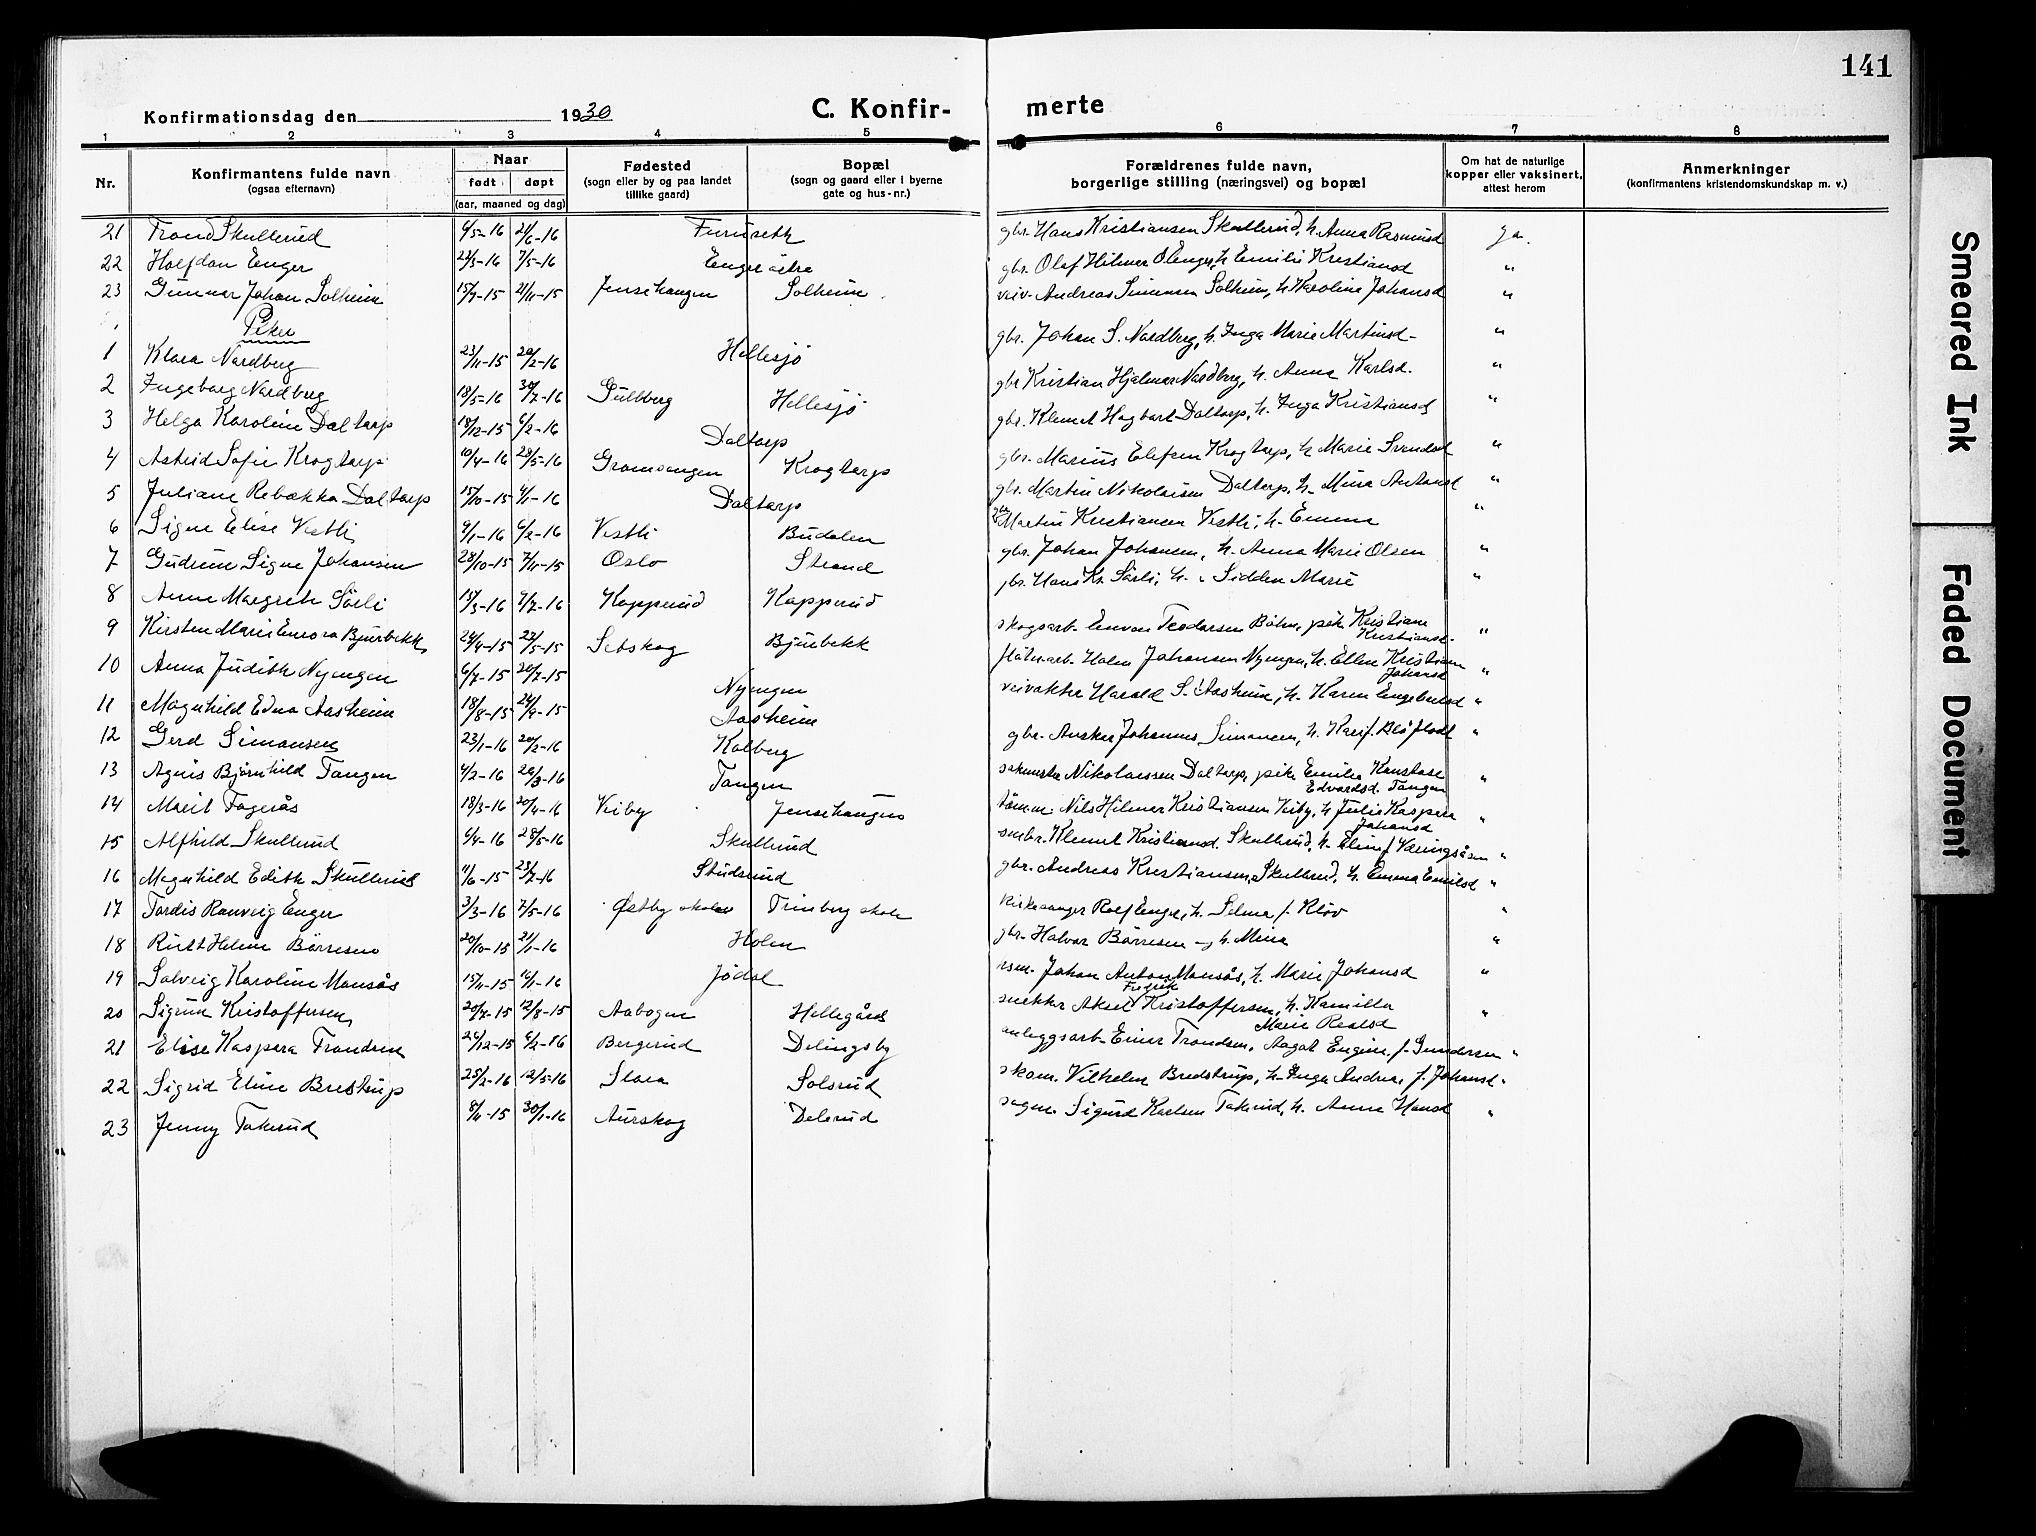 141
Konfirmationsdag den 1930 C. Konfir- merte
1 2 3 4 5 6 7 8
Nr. Konfirmantens fulde navn (ogsaa efternavn) Naar født døpt (aar, maaned og dag) Fødested (sogn eller by og paa landet tillike gaard) Bopæl (sogn og gaard eller i byerne gate og hus-nr.) Forældrenes fulde navn, borgerlige stilling (næringsvei) og bopæl Om hat de naturlige kopper eller vaksinert, attest herom Anmerkninger (konfirmantens kristendomskundskap m. v.)
21 Trond Skullerud 4/5-16 21/6-16 Furuseth gbr. Hans Kristiansen Skullerud, h. Anna Rasmusd ja.
22 Halfdan Enger 24/3-16 7/5-16 Enger østre gbr. Olaf Hilmer O Enger, h. Emilie Kristiansd "
23 Gunnar Johan Solheim 15/9-15 21/11-15 Jensehaugen Solheim Andreas Simensen Solheim, h. Karoline Johansd "
Piker
1 Klara Nordberg 23/11-15 20/2-16 Hellesjø gbr. Johan S. Nordberg, h. Inga Marie Martinsd- "
2 Ingeborg Nordberg 18/5-16 30/7-16 Gullberg Hellesjø gbr Kristian Hjalmar Nordberg, h. Anna Karlsd. "
3 Helga Karoline Daltorp 18/12-15 6/2-16 Daltorp gbr. Klemet Hagbart Daltorp, h. Inga Kristiansd "
4 Astrid Sofie Krogtorp 10/4-16 28/5-16 Gromsengen Krogtorp gbr. Marius Elefsen Krogtorp, h. Marie Svendsd "
5 Juliane Rebekka Daltorp 15/10-15 4/1-16 Daltorp gbr. Martin Nikolaisen Daltorp, h. Mina Antonsd "
6 Signe Elise Vestli 9/1-16 6/2-16 Vestli Budalen gbr Martin Kristiansen Vestli, h. Emma "
7 Gudrun Signe Johansen 28/10-15 7/11-15 Oslo Strand gbr. Johan Johansen, h. Anna Marie Olsen "
8 Anne Margrete Sørli 15/3-16 9/7-16 Kopperud Kopperud gbr. Hans Kr. Sørli, h. Sidden Marie "
9 Kirsten Marie Eurora Bjurbekk 24/4-15 23/5-15 Setskog Bjurbekk skogsarb. Teodorsen Bøhn, pike Kristiane Kristiansd. "
10 Anna Judith Nyengen 6/7-15 20/7-15 Nyengen fløtn.arb. Holm Johansen Nyengen, h. Ellen Kristiane Johansd "
11 Magnhild Edna Aasheim 18/8-15 24/9-15 Aasheim veivokter Harald S. Aasheim, h. Karen Engebretsd "
12 Gerd Simonsen 23/1-16 20/2-16 Kolberg gbr. Johannes Simonsen, h. "
13 Agnis Bjørnhild Tangen 4/2-16 26/3-16 Tangen Nikolaissen Daltorp, pike Emilie Konstase Edvardsd. Tangen "
14 Marit Fagerås 18/3-16 20/4-16 Veiby Jensehaugen tømm. Nils Hilmer Kristiansen Veiby, h Julie Kaspera Johansd "
15 Alfhild Skullerud 6/4-16 28/5-16 Skullerud smbr. Klemet Kristiansd. Skullerud, h. Klungsåsen "
16 Magnhild Edith Skullerud 11/6-15 23/7-16 Studsrud gbr. Andreas Kristiansen Skullerud, h. Emma Emilsd "
17 Tordis Ranveig Enger 3/3-16 7/5-16 Østby skole Trinborg skole kirkesanger Rolf Enger, h. Selma f. Kløv "
18 Rut Helene Børresen 20/10-15 21/1-16 Holen gbr. Halvor Børresen og h. Mina "
19 Solveig Karoline Monsås 15/11-15 16/1-16 Jødal Johan Anton Monsås, h. Marie Johansd "
20 Sigrun Kristoffersen 20/7-15 12/8-15 Aabogen Hellegård snekker Aksel Fredrik Kristoffersen, h. Kamilla Marie "
21 Elise Kaspera Trondsen 26/12-15 6/2-16 Bergerud Delingsby anleggsarb. Einar Trondsen, Aagot Engine, f. Gundersen "
22 Sigrid Eline Bredstrup 25/2-16 12/5-16 Slora Solsrud skom. Vilhelm Bredstrup, h. Inga Andrea, f. Johansd "
23 Jenny Takerud 8/11-15 30/1-16 Aurskog Delerud sagm. Sigurd Karlsen Takerud, h. Anna Hansd "
Smeared Ink
Faded Document